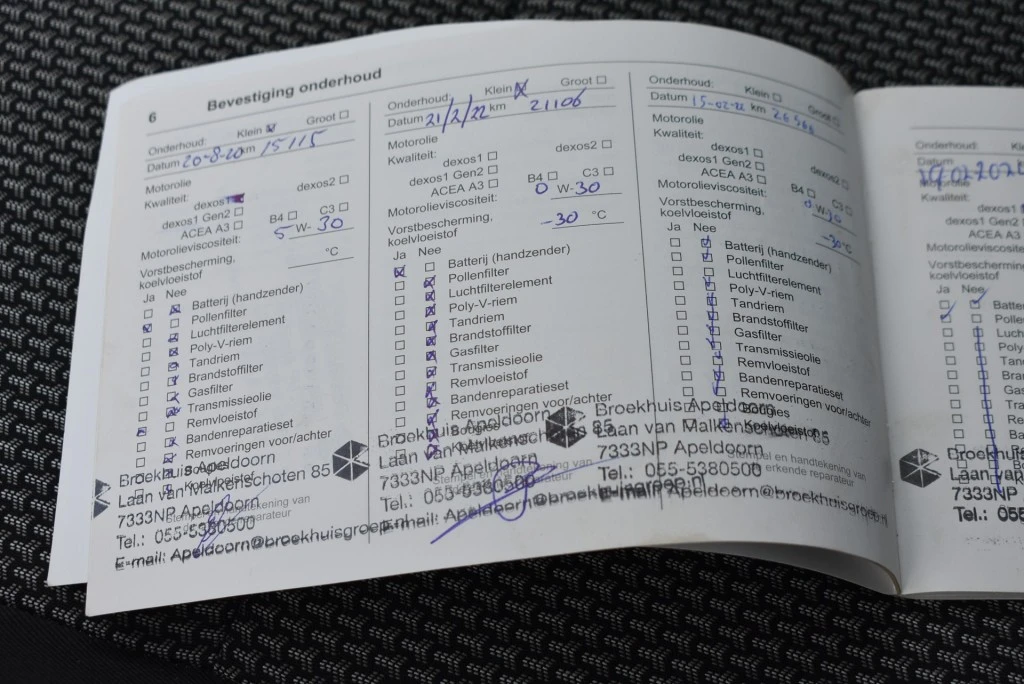 6
Bevestiging onderhoud
Onderhoud: Klein Groot
Datum 20-8-20 km 15115
Motorolie
Kwaliteit:
dexos1 dexos2
dexos1 Gen2
ACEA A3 B4 C3
Motorolieviscositeit: 5 W- 30
Vorstbescherming,
koelvloeistof °C
Ja Nee
Batterij (handzender)
Pollenfilter
Luchtfilterelement
Poly-V-riem
Tandriem
Brandstoffilter
Gasfilter
Transmissieolie
Remvloeistof
Bandenreparatieset
Remvoeringen voor/achter
Koelvloeistof
Broekhuis Apeldoorn
Laan van Malkenschoten 85
7333NP Apeldoorn
Tel.: 055-5380500
E-mail: Apeldoorn@broekhuisgroep.nl
Onderhoud: Klein Groot
Datum 21/2/22 km 21106
Motorolie
Kwaliteit:
dexos1 dexos2
dexos1 Gen2
ACEA A3 B4 C3
Motorolieviscositeit: 0 W-30
Vorstbescherming,
koelvloeistof -30 °C
Ja Nee
Batterij (handzender)
Pollenfilter
Luchtfilterelement
Poly-V-riem
Tandriem
Brandstoffilter
Gasfilter
Transmissieolie
Remvloeistof
Bandenreparatieset
Remvoeringen voor/achter
Bougies
Broekhuis Apeldoorn
Laan van Malkenschoten 85
7333NP Apeldoorn
Tel.: 055-5380500
E-mail: Apeldoorn@broekhuisgroep.nl
Onderhoud: Klein Groot
Datum 15-02-22 km
Motorolie
Kwaliteit:
dexos1 dexos2
dexos1 Gen2
ACEA A3 B4 C3
Motorolieviscositeit: 0 W-30
Vorstbescherming,
koelvloeistof -30 °C
Ja Nee
Batterij (handzender)
Pollenfilter
Luchtfilterelement
Poly-V-riem
Tandriem
Brandstoffilter
Gasfilter
Transmissieolie
Remvloeistof
Bandenreparatieset
Remvoeringen voor/achter
Bougies
Koelvloeistof
Stempel en handtekening van
de erkende reparateur
Broekhuis Apeldoorn
Laan van Malkenschoten 85
7333NP Apeldoorn
Tel.: 055-5380500
E-mail: Apeldoorn@broekhuisgroep.nl
Onderhoud:
Datum
Motorolie
Kwaliteit:
dexos1
dexos1 Gen2
ACEA A3
Motorolieviscositeit
Vorstbescherming
koelvloeistof
Ja Nee
Batte
Polle
Luch
Poly
Tan
Bra
Gas
Broekhuis
Laan va
7333NP
Tel.: 05